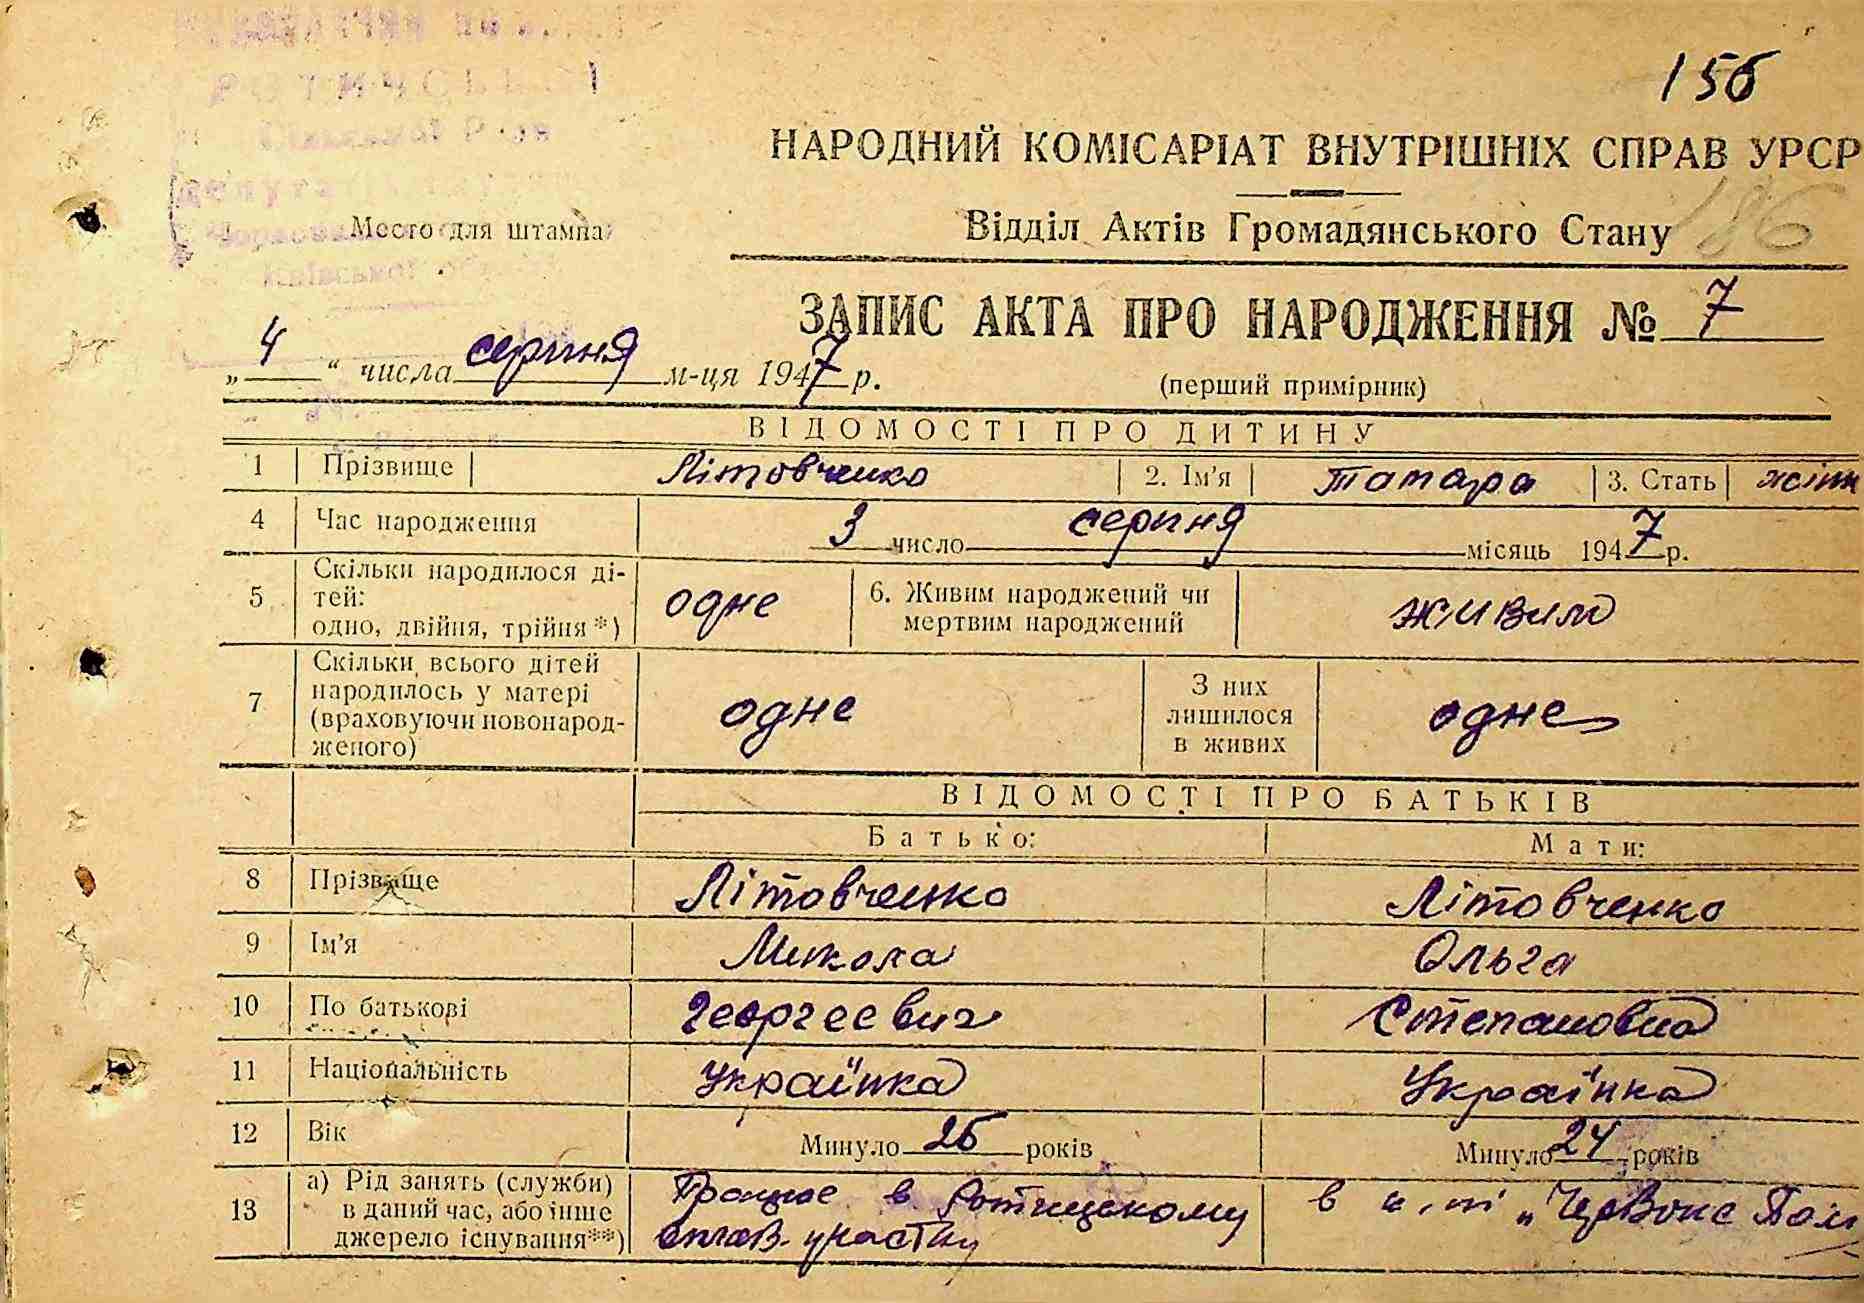 156
НАРОДНИЙ КОМІСАРІАТ ВНУТРІШНІХ СПРАВ УРСР
186
Место для штампа
Відділ Актів Громадянського Стану
ЗАПИС АКТА ПРО НАРОДЖЕННЯ № 7
„ 4 “ числа серпня м-ця 1947 р.
(перший примірник)
ВІДОМОСТІ ПРО ДИТИНУ
1 Прізвище Літовченко 2. Ім'я Татара 3. Стать жіно
4 Час народження 3 число серпня місяць 1947 р.
5 Скільки народилося ді-
тей:
одно, двійня, трійня*) одне 6. Живим народжений чи
мертвим народжений живим
7 Скільки всього дітей
народилось у матері
(враховуючи новонарод-
женого) одне З них
лишилося
в живих одне
ВІДОМОСТІ ПРО БАТЬКІВ
Батько: Мати:
8 Прізвище Літовченко Літовченко
9 Ім'я Микола Ольга
10 По батькові Георгеевич Степановна
11 Національність Українка Українка
12 Вік Минуло 25 років Минуло 24 років
13 а) Рід занять (служби)
в даний час, або інше
джерело існування**)
Працює в Ротицькому
сплав. участку
в к, т „Червоне Пол